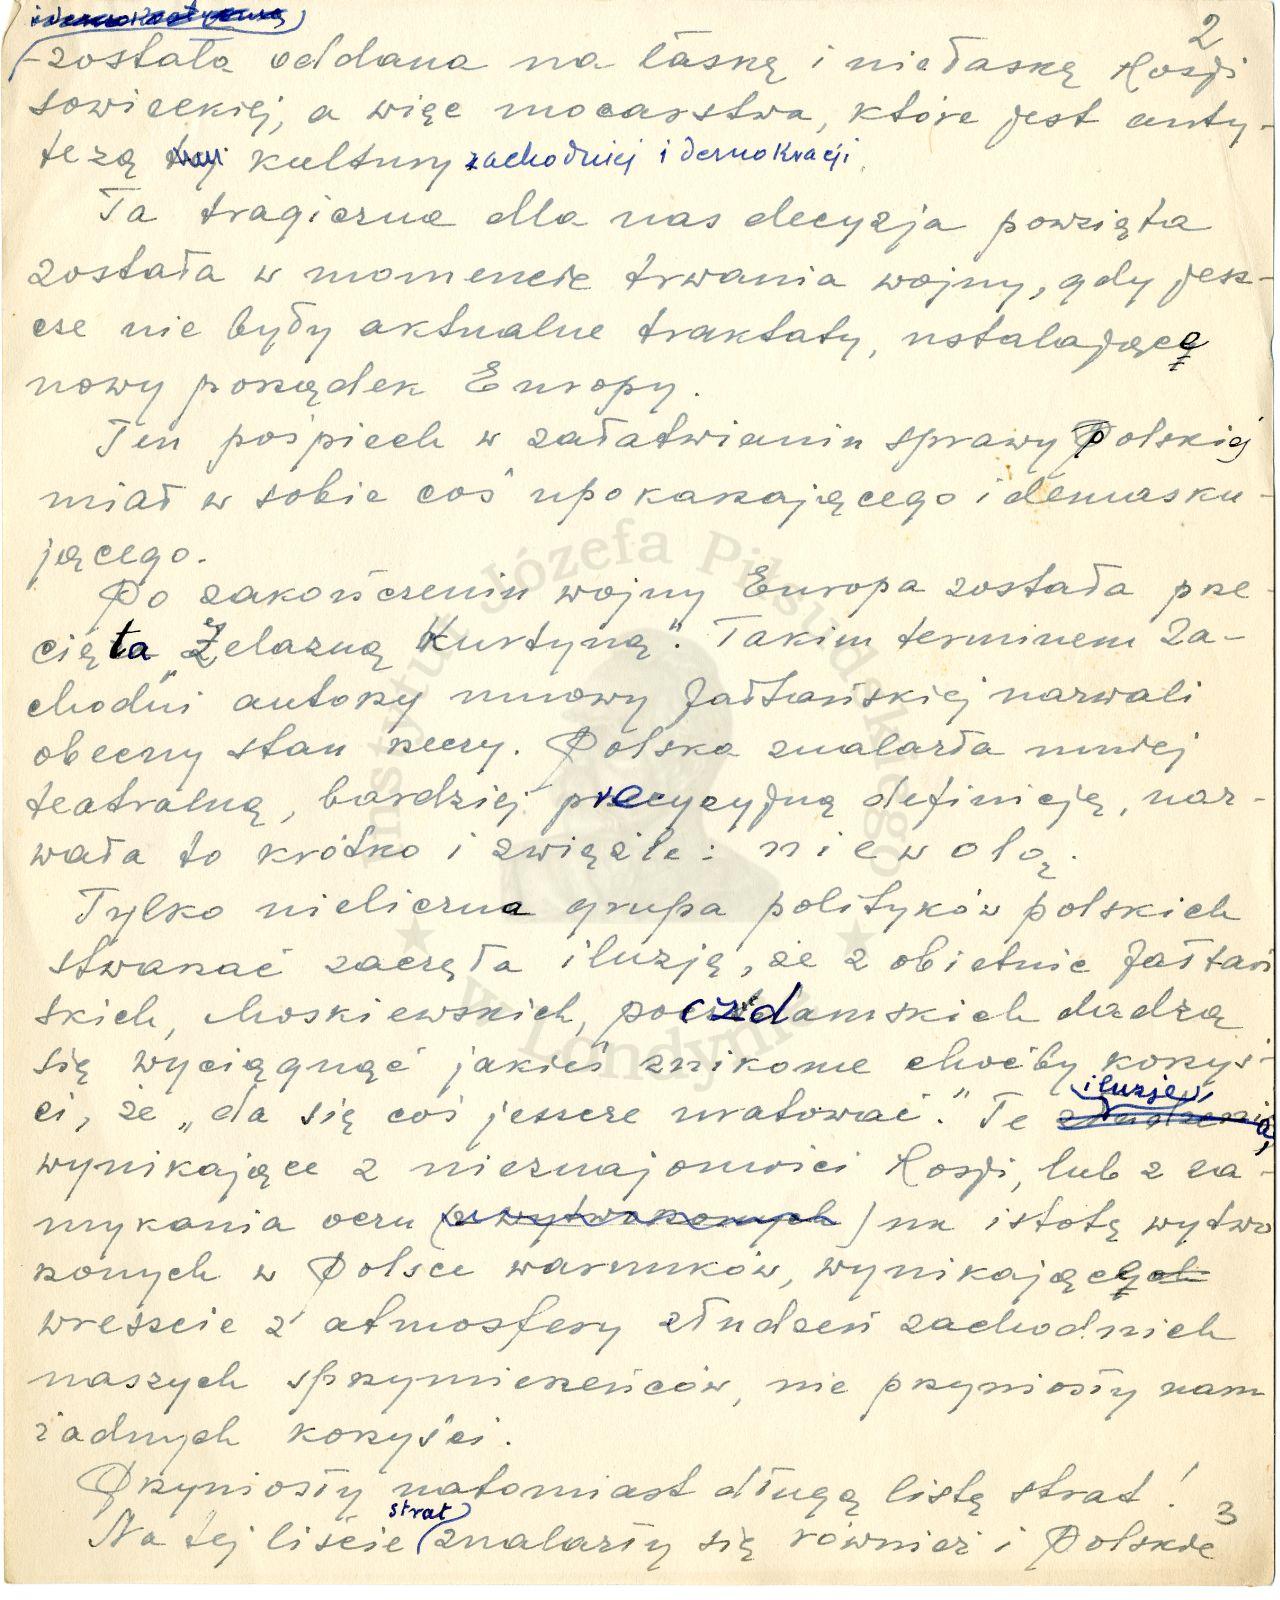 i demokratyczną 2
została oddana na łaskę i niełaskę Rosji
sowieckiej, a więc mocarstwa, które jest anty-
tezą tej kultury zachodniej i demokracji.
Ta tragiczna dla nas decyzja powzięta
została w momencie trwania wojny, gdy jesz-
cze nie były aktualne traktaty, ustalające
nowy porządek Europy.
Ten pośpiech w załatwianiu sprawy Polskiej
miał w sobie coś upokarzającego i demasku-
jącego.
Po zakończeniu wojny Europa została prze-
cięta „Żelazną Kurtyną". Takim terminem za-
chodni autorzy umowy Jałtańskiej nazwali
obecny stan rzeczy. Polska znalazła mniej
teatralną, bardziej precyzyjną definicję, naz-
wała to krótko i zwięźle: niewolą.
Tylko nieliczna grupa polityków polskich
stwarzać zaczęła iluzję, że z obietnic Jałtań
skich, Moskiewskich, poczdamskich dadzą
się wyciągnąć jakieś znikome choćby korzyś-
ci, że „da się coś jeszcze uratować." Te złudzenia iluzje,
wynikające z nieznajomości Rosji, lub z za-
mykania oczu (z wytworzonych) na istotę wytwo
rzonych w Polsce warunków, wynikających
wreszcie z atmosfery złudzeń zachodnich
naszych sprzymierzeńców, nie przyniosły nam
żadnych korzyści.
Przyniosły natomiast długą listę strat!
Na tej liście strat znalazły się również i Polskie
3
Instytut Józefa Piłsudskiego
w Londynie